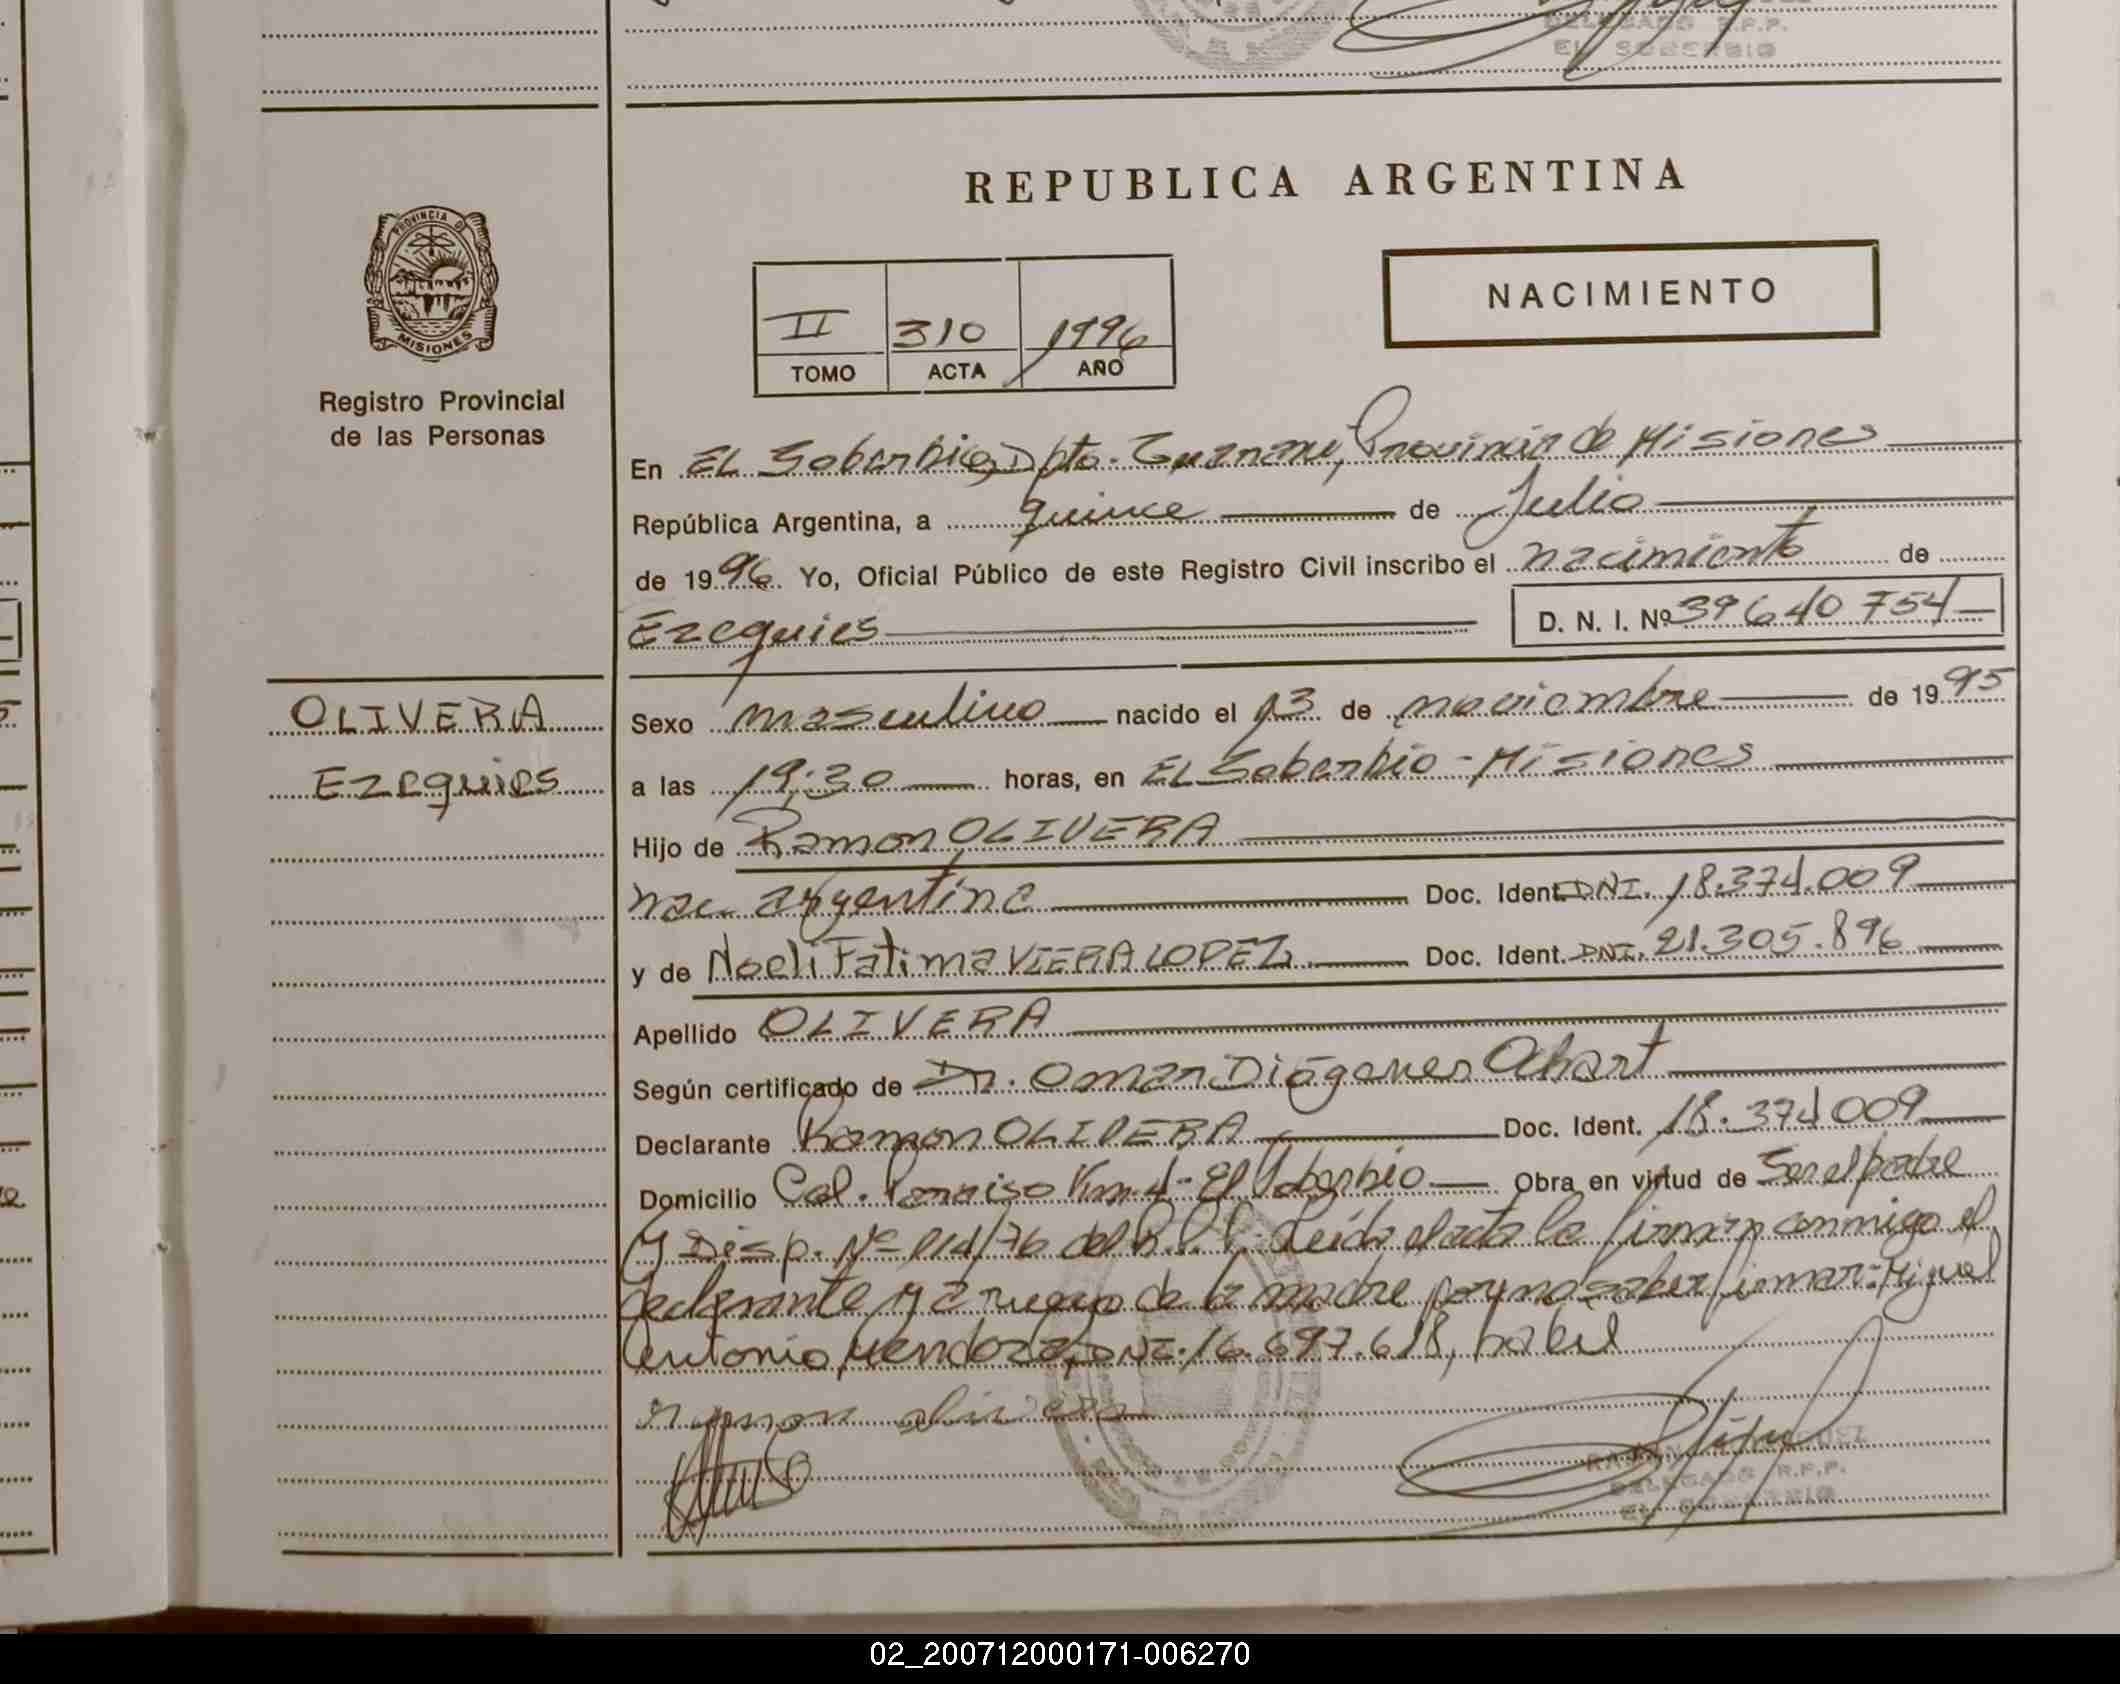 DELEGADO R.P.P.
EL SOBERBIO
REPUBLICA ARGENTINA
PROVINCIA D
MISIONES
Registro Provincial
de las Personas
NACIMIENTO
II 310 1996
TOMO ACTA AÑO
En EL Soberbio, Dpto. Guarani, Provincia de Misiones
República Argentina, a quince de Julio
de 1996. Yo, Oficial Público de este Registro Civil inscribo el nacimiento de
Ezequies D. N. I. Nº 39640754
OLIVERA
Ezequies
Sexo masculino nacido el 13 de noviembre de 1995
a las 19:30 horas, en EL Soberbio - Misiones
Hijo de Ramon OLIVERA
nac. argentina Doc. Ident. DNI. 18.374.009
y de Noeli Fatima VIERA LOPEZ Doc. Ident. DNI. 21.305.896
Apellido OLIVERA
Según certificado de Dr. Omar Diógenes Ahart
Declarante Ramon OLIVERA Doc. Ident. 18.374009
Domicilio Col. Paraiso Km 4 - El Soberbio Obra en virtud de Ser el padre
y Disp. Nº 114/76 del R.P.P. Leída el acta la firman conmigo el
declarante y a ruego de la madre por no saber firmar: Miguel
Antonio Mendoza, DNI. 16.697.618, habil
ramon olivera
DELEGADO R.P.P.
EL SOBERBIO
02_200712000171-006270